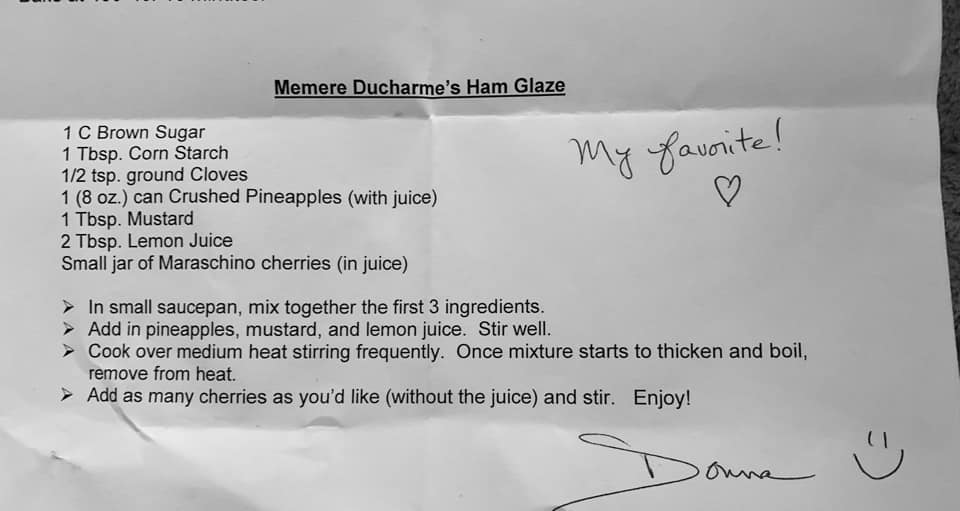 Memere Ducharme's Ham Glaze
1 C Brown Sugar
1 Tbsp. Corn Starch
1/2 tsp. ground Cloves
1 (8 oz.) can Crushed Pineapples (with juice)
1 Tbsp. Mustard
2 Tbsp. Lemon Juice
Small jar of Maraschino cherries (in juice)
My favorite!
➢ In small saucepan, mix together the first 3 ingredients.
➢ Add in pineapples, mustard, and lemon juice. Stir well.
➢ Cook over medium heat stirring frequently. Once mixture starts to thicken and boil,
remove from heat.
➢ Add as many cherries as you'd like (without the juice) and stir. Enjoy!
Donna